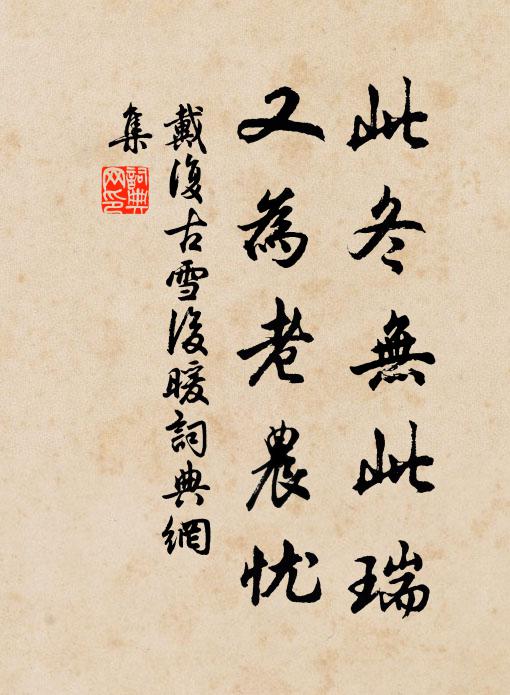 此冬無此瑞
又為老農忧
戴復古雪後暖詞典網
集
詞典
网印